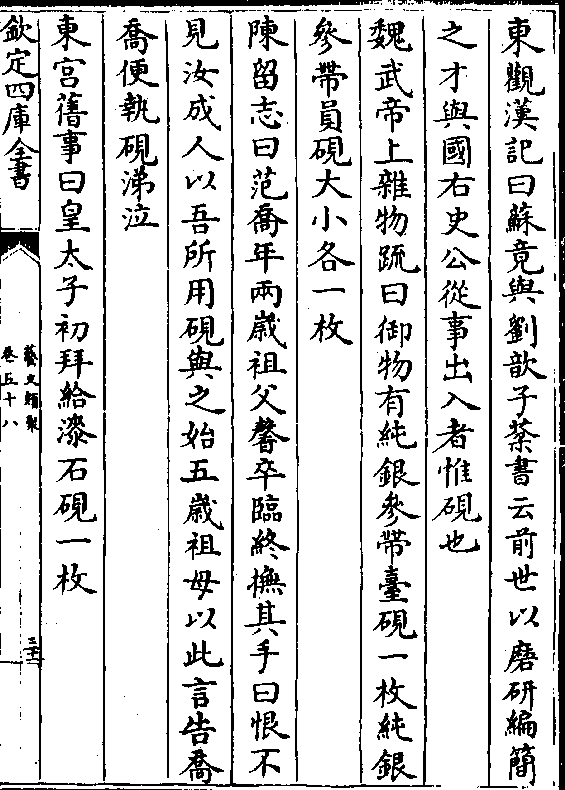 東觀漢記曰蘇竟與劉歆子棻書云前世以磨研編簡
之才與國右史公從事出入者惟硯也
魏武帝上雜物疏曰御物有純銀參帶臺硯一枚純銀
參帶員硯大小各一枚
陳留志曰范喬年兩歲祖父馨卒臨終撫其手曰恨不
見汝成人以吾所用硯與之始五歲祖母以此言告喬
喬便執硯涕泣
東宮舊事曰皇太子初拜給漆石硯一枚
欽定四庫全書
藝文類聚
卷五十八